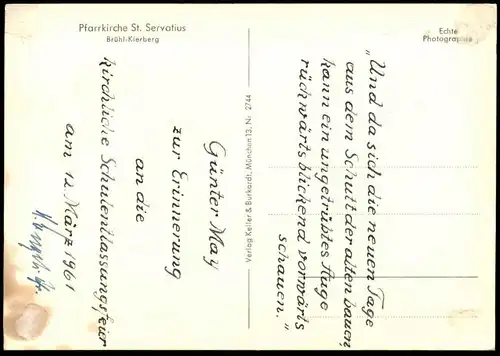 Pfarrkirche St. Servatius
Brühl-Kierberg
Echte
Photographie
Günter May
zur Erinnerung
an die
kirchliche Schulentlassungsfeier
am 12. März 1961
Verlag Keller & Burkardt, München 13, Nr. 2744
"Und da sich die neuen Tage
aus dem Schutt der alten bauen,
kann ein ungetrübtes Auge
rückwärts blickend vorwärts
schauen."